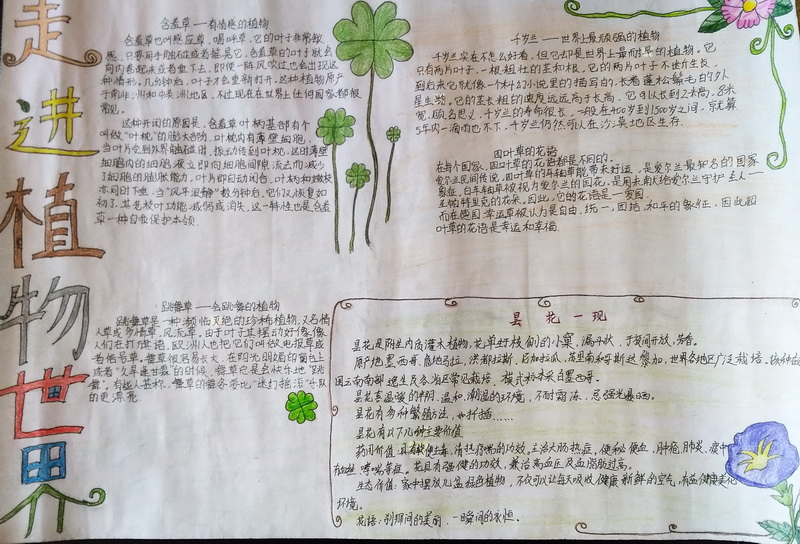 走进植物世界
含羞草——有情感的植物
含羞草也叫感应草，喝呼草，它的叶子非常敏
感，只要用手触碰或者摇晃它，含羞草的叶子就会
向内卷起来或者垂下去，即使一阵风吹过也会出现这
种情形，几分钟后，叶子才会重新打开。这种植物原产
于南非洲和中美洲地区，不过现在在世界上任何国家都很
常见。
这种开闭的原因是，含羞草叶柄基部有个
叫做“叶枕”的膨大部分，叶枕内有薄壁细胞，
当叶片受到外界触碰时，振动传到叶枕，这时薄壁
细胞内的细胞液立即向细胞间隙流去而减少
了细胞的膨胀能力，叶片即自动闭合，叶柄和嫩枝
亦同时下垂，当“风平浪静”数分钟后，它们又恢复如
初了。其老枝叶功能减弱或消失，这一特性也是含羞
草一种自我保护本领。
千岁兰——世界上最顽强的植物
千岁兰实在不怎么好看，但它却是世界上最耐旱的植物。它
只有两片叶子，一根粗壮的茎和根，它的两片叶子不断生长，
到后来它就像一个科幻小说里的描写的，长着蓬松鬃毛的外
星生物，它的茎长粗的速度远远高于长高，它可以长到2米高，8米
宽，顾名思义，千岁兰的寿命很长，一般在400岁到1500岁之间，就算
5年内一滴雨也不下，千岁兰仍然可以在沙漠地区生存。
四叶草的花语
在每个国家，四叶草的花语都是不同的。
爱尔兰民间传说，四叶草的每和草能带来好运，是爱尔兰最知名的国家
象征，白车轴草被视为爱尔兰的国花，是用来献给爱尔兰守护主人——
圣帕特里克的花朵，因此，它的花语是——爱国
而在德国幸运草被认为是自由、统一，团结，和平的象征，因此四
叶草的花语是幸运和幸福.
跳舞草——会跳舞的植物
跳舞草是一种濒临灭绝的珍稀植物，又名情
人草或多情草，风流草。由于叶子其摆动好像像
人们在打旗语，欧洲人也把它们叫做电报草或
者信号草。舞草很容易长大，在阳光明媚的窗台上
或者“久旱逢甘霖”的时候，舞草总是会快乐地“跳
舞”。有些人甚称，舞草的舞姿堪比“迷幻摇滚”乐队
的更漂亮
昙花一现
昙花是附生肉质灌木植物，花单生于枝侧的小窠，漏斗状，于夜间开放，芳香。
原产地墨西哥、危地马拉、洪都拉斯、尼加拉瓜、苏里南和哥斯达黎加，世界各地区广泛栽培。
国云南南部逸生及各地区常见栽培，模式标本采自墨西哥。
昙花喜温暖的半阴、温和、潮湿的环境，不耐霜冻，忌强光暴晒。
昙花有多种繁殖方法，如扦插……
昙花有以下几种主要价值
药用价值：具有软便去毒，清热疗喘的功效，主治大肠热症，便秘便血，肿疮，肺炎，痰中
有血丝，哮喘等症。花具有强健的功效，兼治高血压及血脂肪过高。
生态价值：家中摆放几盆绿色植物，不仅可以让每天吸收健康新鲜的空气，有益健康美化
环境。
花语：刹那间的美丽，一瞬间的永恒。